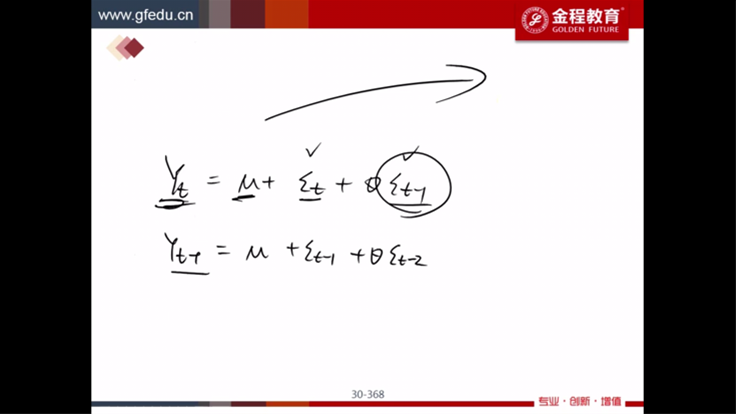 www.gfedu.cn
金程教育
GOLDEN FUTURE
Yt = μ + Σt + θ Σt-1
Yt-1 = μ + Σt-1 + θ Σt-2
30-368
专业·创新·增值